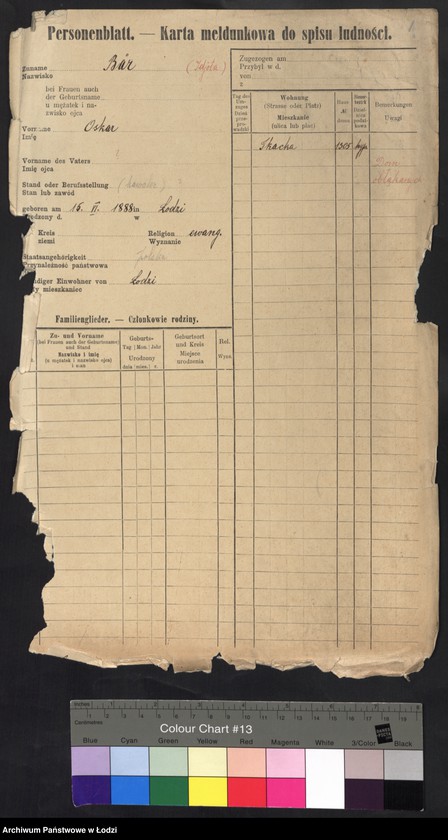 Personenblatt. — Karta meldunkowa do spisu ludności.
Zuname Bär
Nazwisko
bei Frauen auch
der Geburtsname
u mężatek i na-
zwisko ojca
Vorname Oskar
Imię
Vorname des Vaters
Imię ojca
Stand oder Berufsstellung
Stan lub zawód
geboren am 15. II. 1888 in Łodzi
w
Kreis
ziemi
Religion ewang.
Wyznanie
Staatsangehörigkeit
Przynależność państwowa
Einwohner von Łodzi
mieszkaniec
Familienglieder. — Członkowie rodziny.
Zu- und Vorname
(bei Frauen auch der Geburtsname)
und Stand
Nazwisko i imię
(u mężatek i nazwisko ojca)
i stan
Geburts-
Tag | Mon. | Jahr
Urodzony
dnia | mies. | r.
Geburtsort
und Kreis
Miejsce
urodzenia
Rel.
Wyzn.
Zugezogen am
Przybył w d.
von
z
Tag der
Wohnung
(Strasse oder Platz)
Mieszkanie
(ulica lub plac)
Haus
№
domu
Bemerkungen
Uwagi
Tkacha 13
Dom
Archiwum Państwowe w Łodzi
Inches 1 2 3 4 5 6 7 8
Centimetres 1 2 3 4 5 6 7 8 9 10 11 12 13 14 15 16 17 18 19
Colour Chart #13
Blue Cyan Green Yellow Red Magenta White 3/Color Black